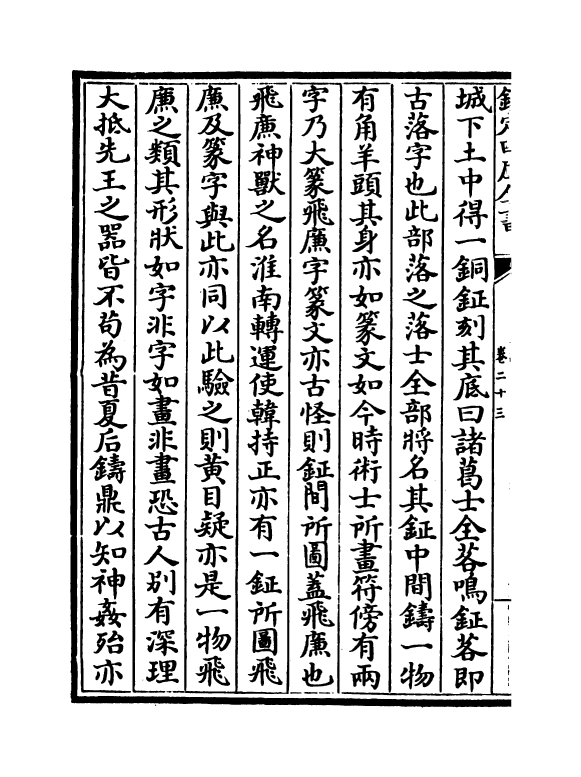 欽定四庫全書
卷二十三
城下土中得一銅鉦刻其底曰諸葛士全茖鳴鉦茖即
古落字也此部落之落士全部將名其鉦中間鑄一物
有角羊頭其身亦如篆文如今時術士所畫符傍有兩
字乃大篆飛廉字篆文亦古怪則鉦間所圖蓋飛廉也
飛廉神獸之名淮南轉運使韓持正亦有一鉦所圖飛
廉及篆字與此亦同以此驗之則黄目疑亦是一物飛
廉之類其形狀如字非字如畫非畫恐古人別有深理
大抵先王之器皆不苟為昔夏后鑄鼎以知神姦殆亦